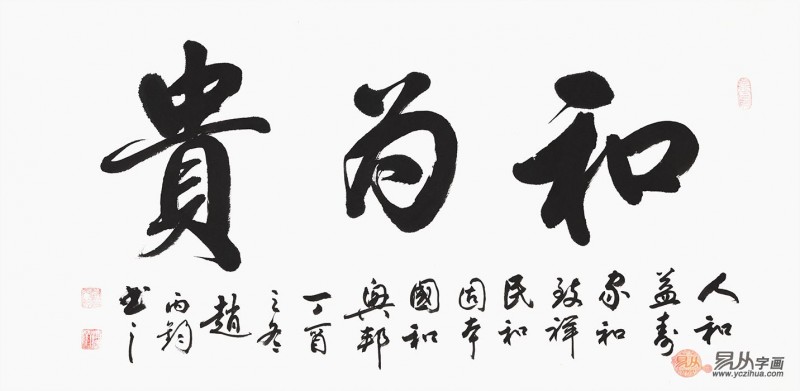 和为貴
人和
益寿
家和
致祥
民和
固本
國和
興邦
丁酉
之冬
趙
丙鈞
书之
易从字画
www.yczihua.com